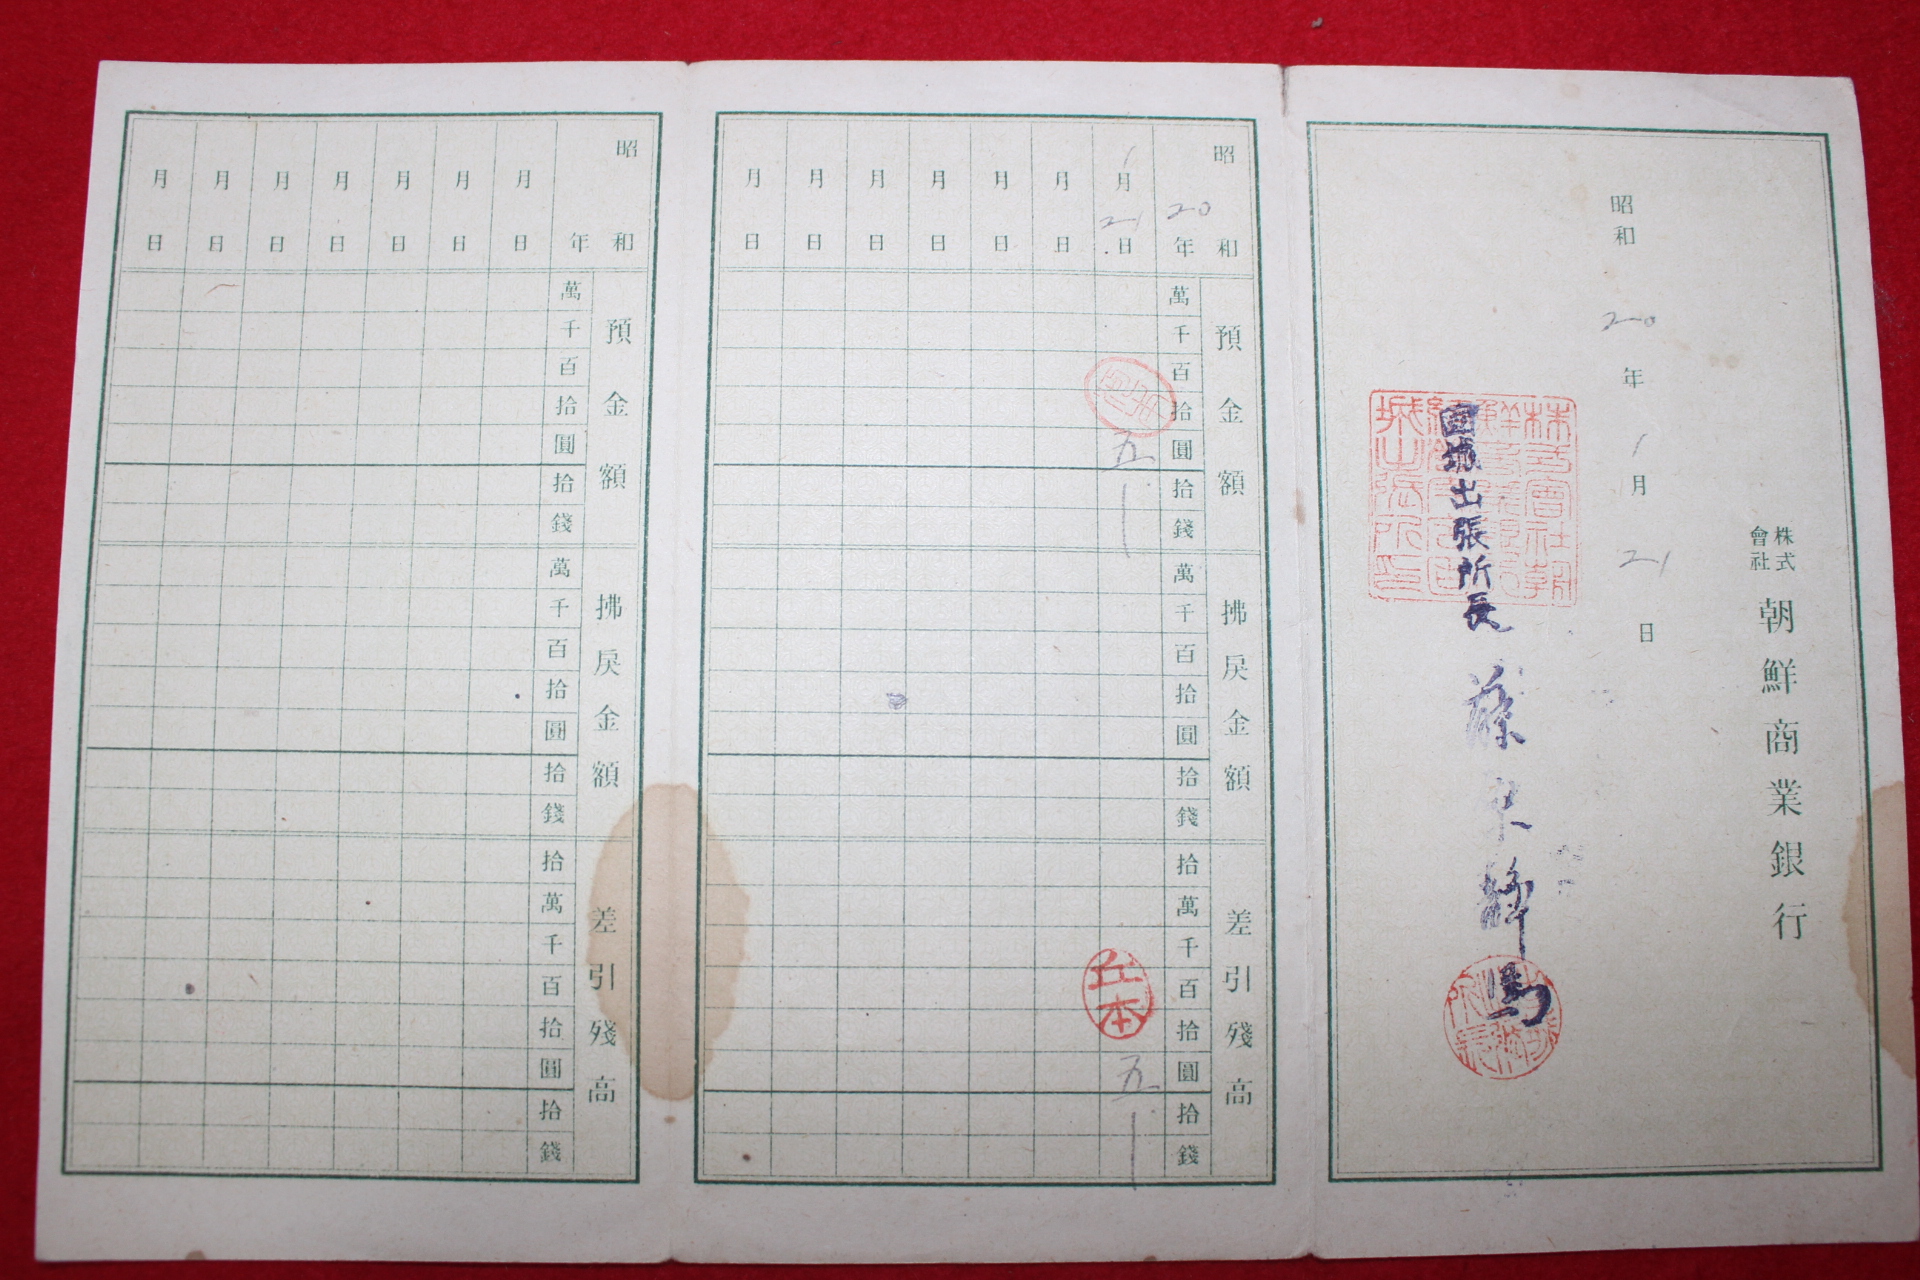 株式會社 朝鮮商業銀行
昭和 20 年 1 月 21 日
固城出張所長
昭和 20 年
1 月 21 日
月 日
月 日
月 日
月 日
月 日
月 日
預金額
萬 千 百 拾 圓 拾 錢
五 |
拂戾金額
萬 千 百 拾 圓 拾 錢
差引殘高
拾 萬 千 百 拾 圓 拾 錢
五 |
昭和 年
月 日
月 日
月 日
月 日
月 日
月 日
月 日
預金額
萬 千 百 拾 圓 拾 錢
拂戾金額
萬 千 百 拾 圓 拾 錢
差引殘高
拾 萬 千 百 拾 圓 拾 錢